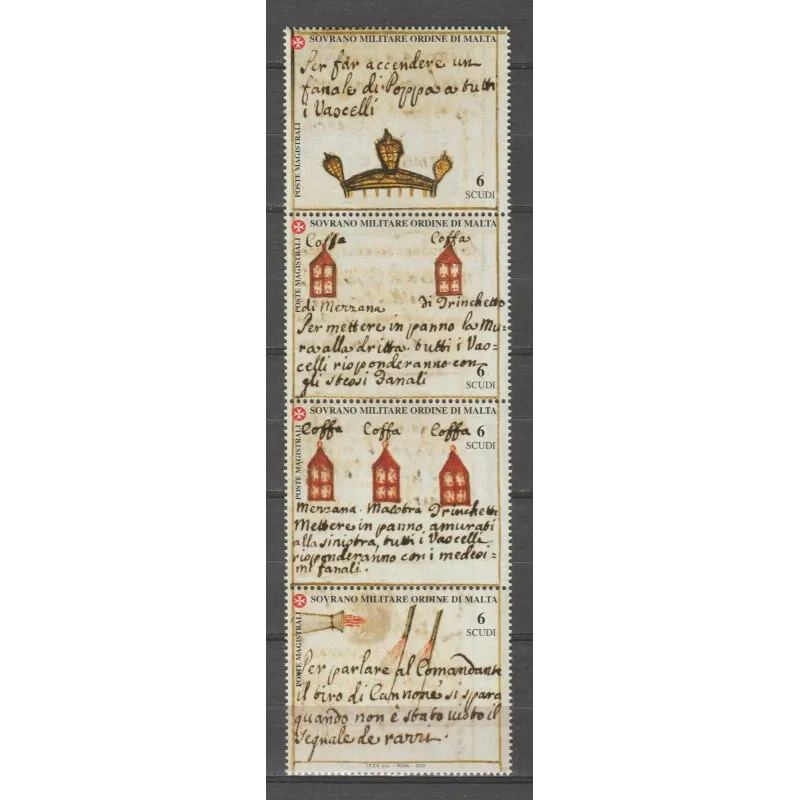 SOVRANO MILITARE ORDINE DI MALTA
Per far accendere un
fanale di Poppa a tutti
i Vascelli
POSTE MAGISTRALI
6
SCUDI
SOVRANO MILITARE ORDINE DI MALTA
POSTE MAGISTRALI
Coffa Coffa
di Mezzana di Trinchetto
Per mettere in panno la Mu-
ra alla dritta. tutti i Vas=
celli risponderanno con
gli stessi fanali
6
SCUDI
SOVRANO MILITARE ORDINE DI MALTA
POSTE MAGISTRALI
Coffa Coffa Coffa
6
SCUDI
Mezzana. Maestra Trinchetto
Mettere in panno amurati
alla sinistra, tutti i Vascelli
risponderanno con i medesi-
mi fanali.
SOVRANO MILITARE ORDINE DI MALTA
POSTE MAGISTRALI
6
SCUDI
Per parlare al Comandante
il tiro di Cannone si spara
quando non è stato visto il
segnale de razzi.
ROMA